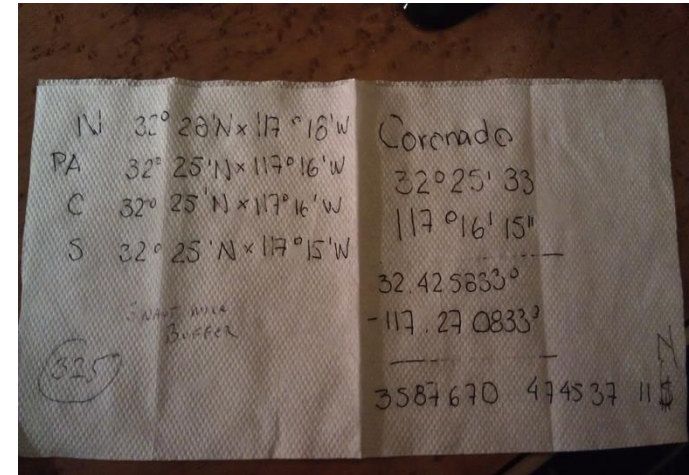 N 32° 28'N x 117° 18'W
PA 32° 25'N x 117° 16'W
C 32° 25'N x 117° 16'W
S 32° 25'N x 117° 15'W
3 NAUT MILE
BUFFER
325
Coronado
32° 25' 33
117° 16' 15"
32.425833°
-117.270833°
N
3587670 474537 11